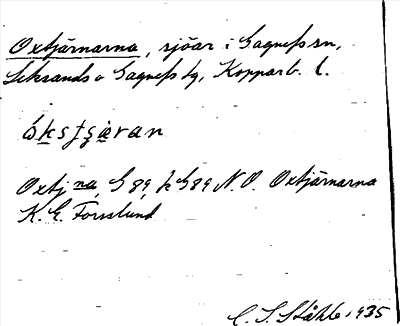 Oxtjärnarna, sjöar i Gagnefs sn,
Leksands o Gagnefs tg, Kopparb. l.
ókstjäran
Oxtj na, G 89, k G 89 N.O. Oxtjärnarna
K. E. Forsslund
C. I. Ståhle 1935